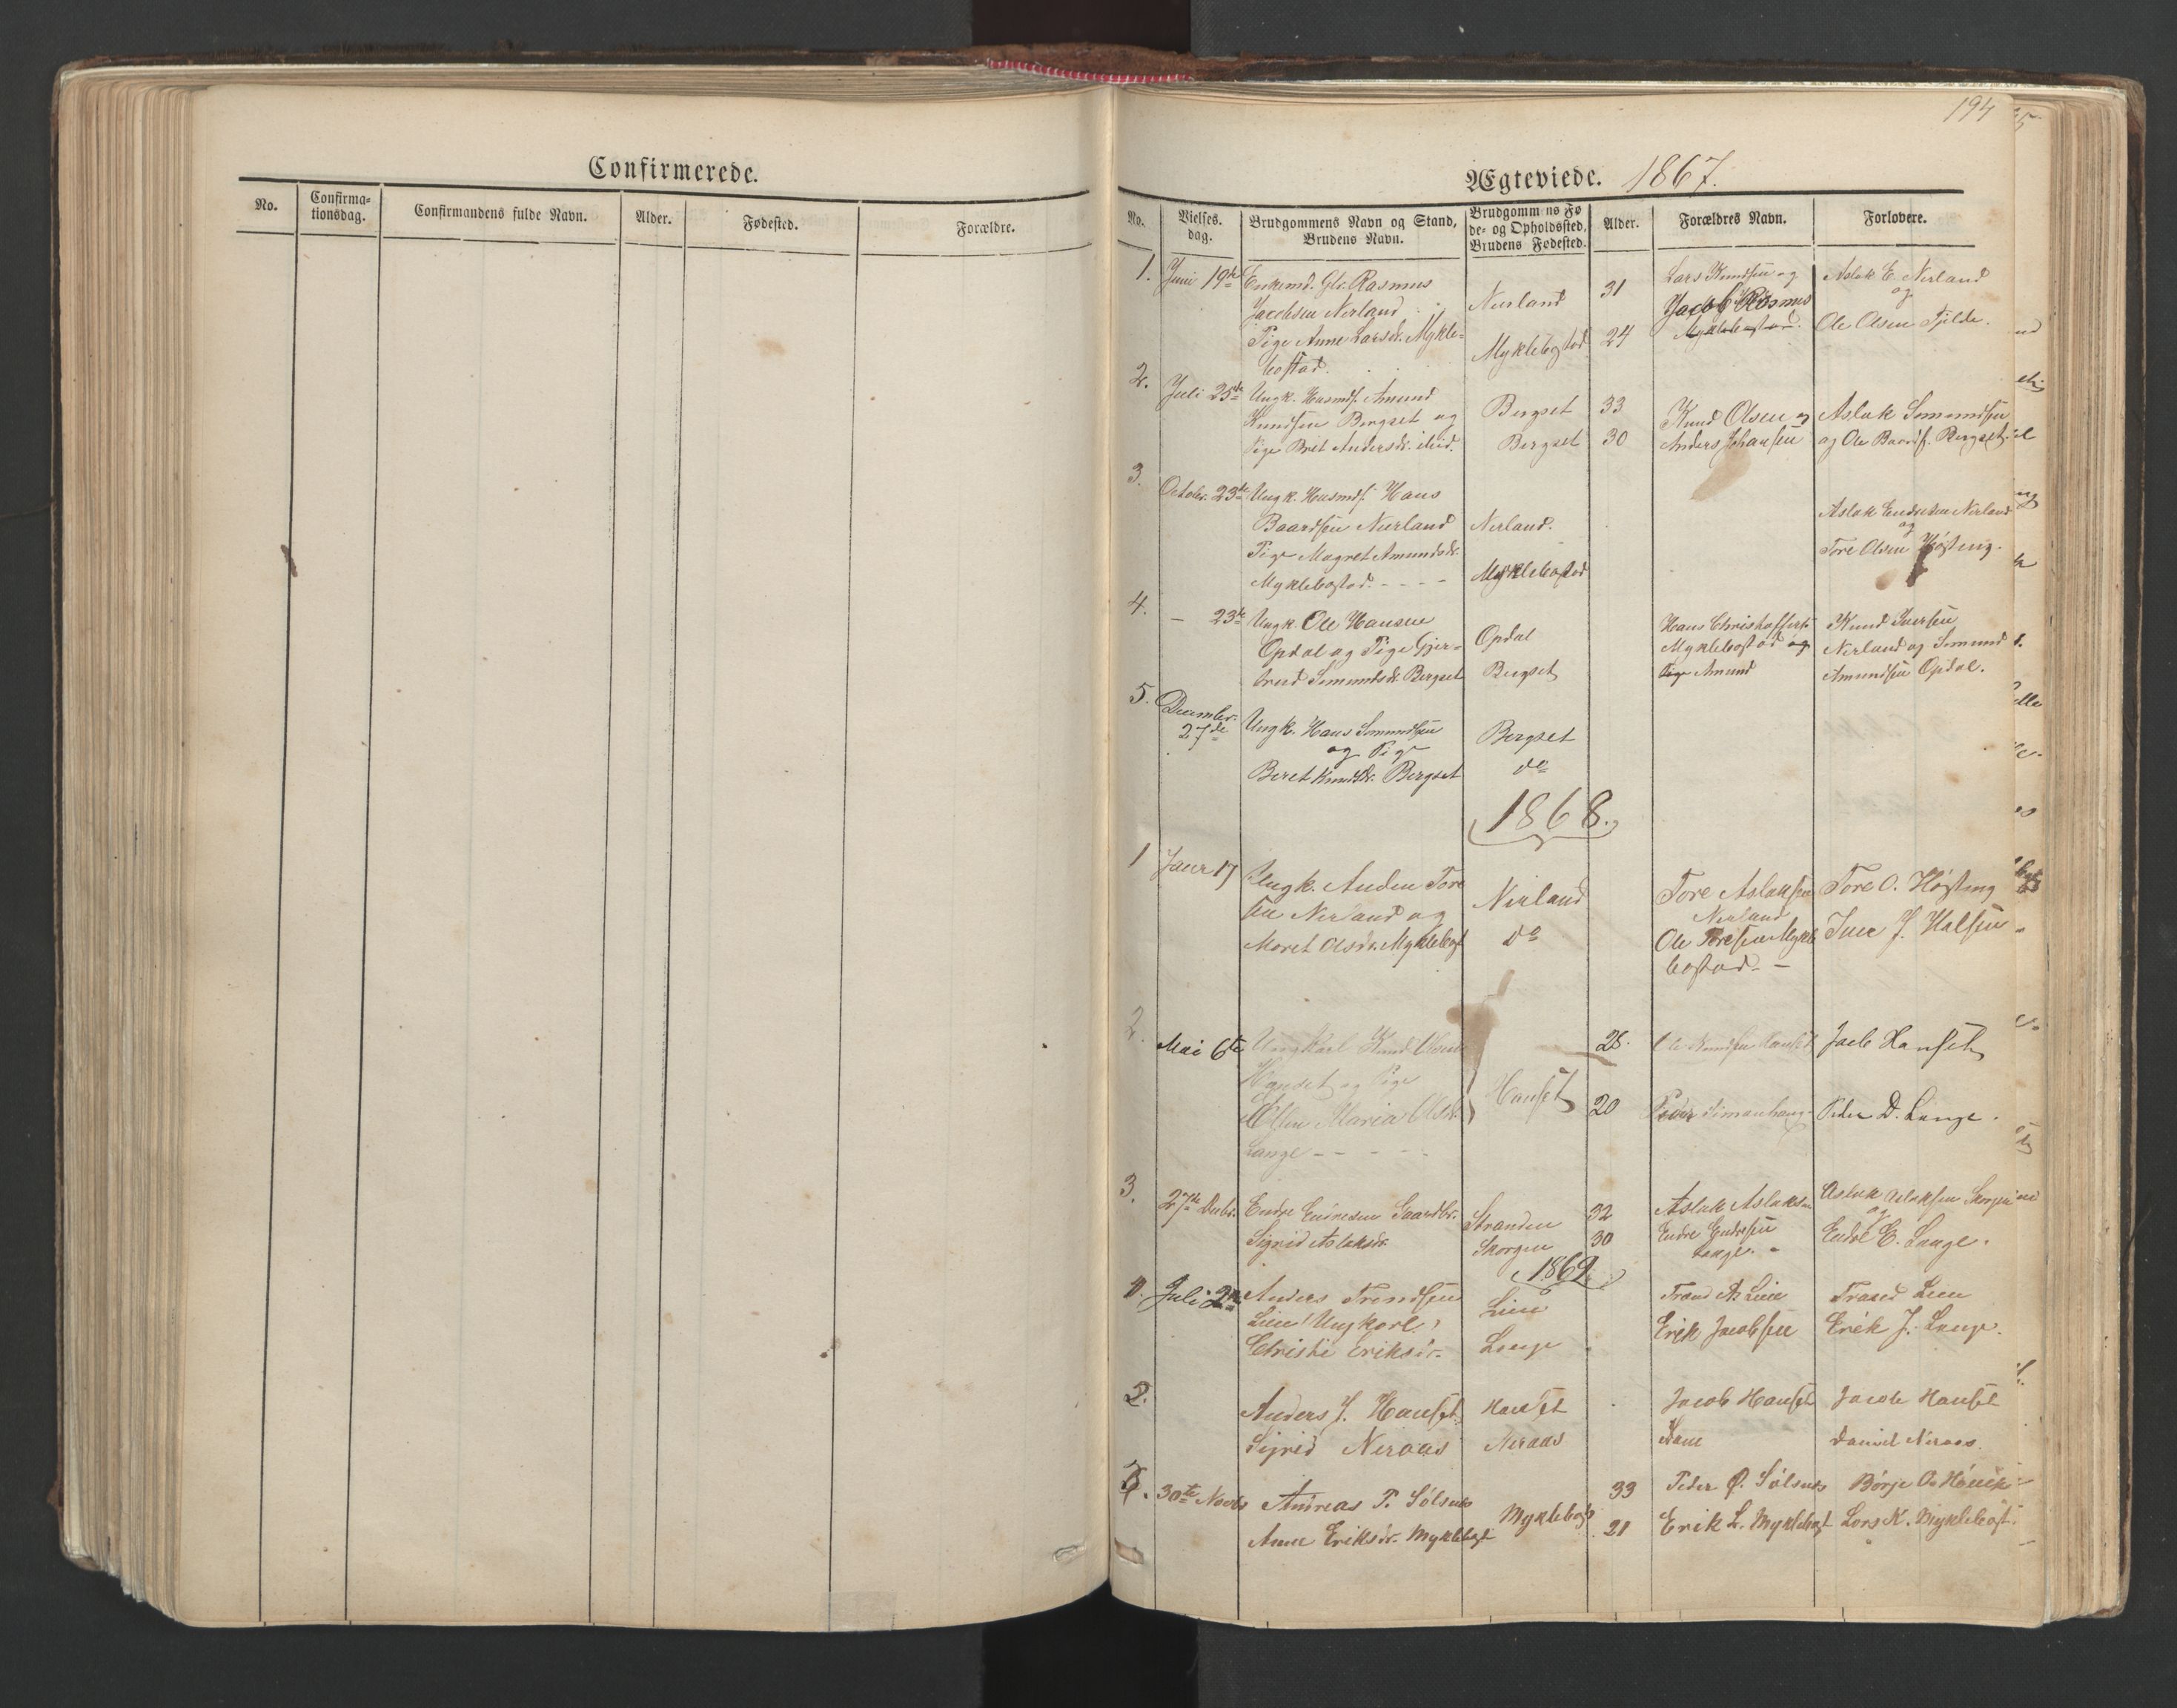 Confirmerede.
No.
Confirma-
tionsdag.
Confirmandens fulde Navn.
Alder.
Fødested.
Forældre.
194
Ægteviede. 1867.
No.
Vielses.
dag.
Brudgommens Navn og Stand,
Brudens Navn.
Brudgomm ns Fø
de- og Opholdssted,
Brudens Fødested.
Alder.
Forældres Navn.
Forlovere.
1. Juni 19de Enkemd. Gbr. Rasmus
Jacobsen Nerland
Pige Anne Larsdr. Mykle-
bostad.
Nerland 31
Myklebostad 24
Lars Knudsen og
Jacob Rasmus
Myklebostad.
Aslak E. Nerland
og
Ole Olsen Fjelde.
2. Juli 25de Ungk. Husmdf. Amund
Knudsen Bergset og
Pige Brit Andersdr. ibid.
Bergset 33
Bergset 30
Knud Olsen og
Anders Johansen
Aslak Simundsen
og Ole Baardf. Bergset.
3. Octobr. 23de Ungk. Husmdf. Hans
Baardsen Nerland
Pige Magret Amundsdr.
Myklebostad. - - - -
Nerland.
Myklebostad
Aslak Endresen Nerland
og
Tore Olsen Høsteng.
4. — 23de Ungk. Ole Hansen
Opdal og Pige Gjer-
trud Simundsdr. Bergset
Opdal
Bergset
Hans Christoffers.
Myklebostad og
Amund
Knud Iversen
Nerland og Simund
Amundsen Opdal.
5. Decembr.
27de
Ungk. Hans Simundsen
og Pige
Beret Knudsdr. Bergset
Bergset
do
1868.
1 Janr 17 Ungk. Auden Tore
sen Nerland og
Maret Olsdr. Myklebost
Nerland
do
Tore Aslaksen
Nerland
Ole Toresen Mykle
bostad. -
Tore O. Høsteng
Iver J. Halsen
2. Mai 6te Ungkarl Knud Olsen
Hanset og Pige
Elsen Maria Olsdr.
Lange - - - - -
Hanset
28.
20
Ole Knudsen Hanset
Jacb Hanset
Peder D. Lange.
3. 27de Decbr. Endre Endresen Gaardbr.
Sigrid Aslaksdr.
Stranden 32
Skorgen 30
Aslak Aslaksen
Endre Endresen
Lange.
Aslak Aslaksen Skorgen
og
Endre E. Lange.
1869
1. Juli 2den Anders Trondsen
Lien (Ungkarl)
Christi Eriksdr.
Lien
Lange
Trond A. Lien
Erik Jacobsen
Trond Lien
Erik J. Lange.
2.
Anders J. Hanset
Sigrid Neraas
Hanset
Neraas
Jacob Hanset
Jacob Hanset
Daniel Neraas.
3. 30te Novbr Andreas P. Sølsnes
Anne Eriksdr. Myklebost
Myklebost
33
21
Peder O. Sølsnes
Erik L. Myklebost
Børje O. Høvik
Lars K. Myklebost.